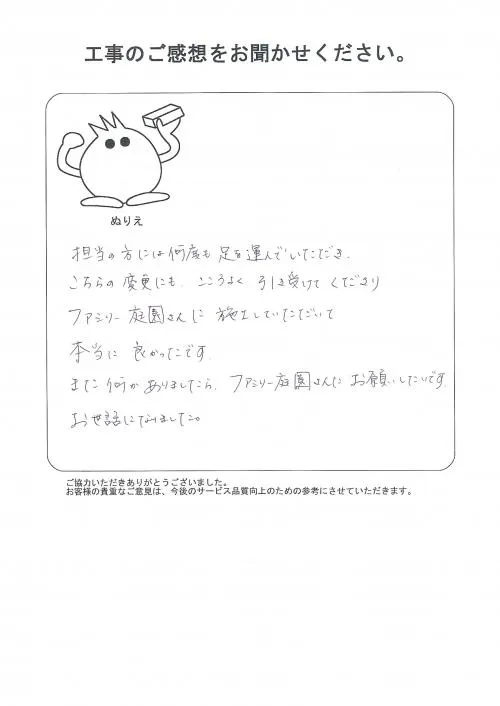 工事のご感想をお聞かせください。
ぬりえ
担当の方には何度も足を運んでいただき、
こちらの変更にも、こころよく引き受けてくださり
ファミリー庭園さんに施工していただいて
本当に良かったです。
また何かありましたら、ファミリー庭園さんにお願いしたいです。
お世話になりました。
ご協力いただきありがとうございました。
お客様の貴重なご意見は、今後のサービス品質向上のための参考にさせていただきます。